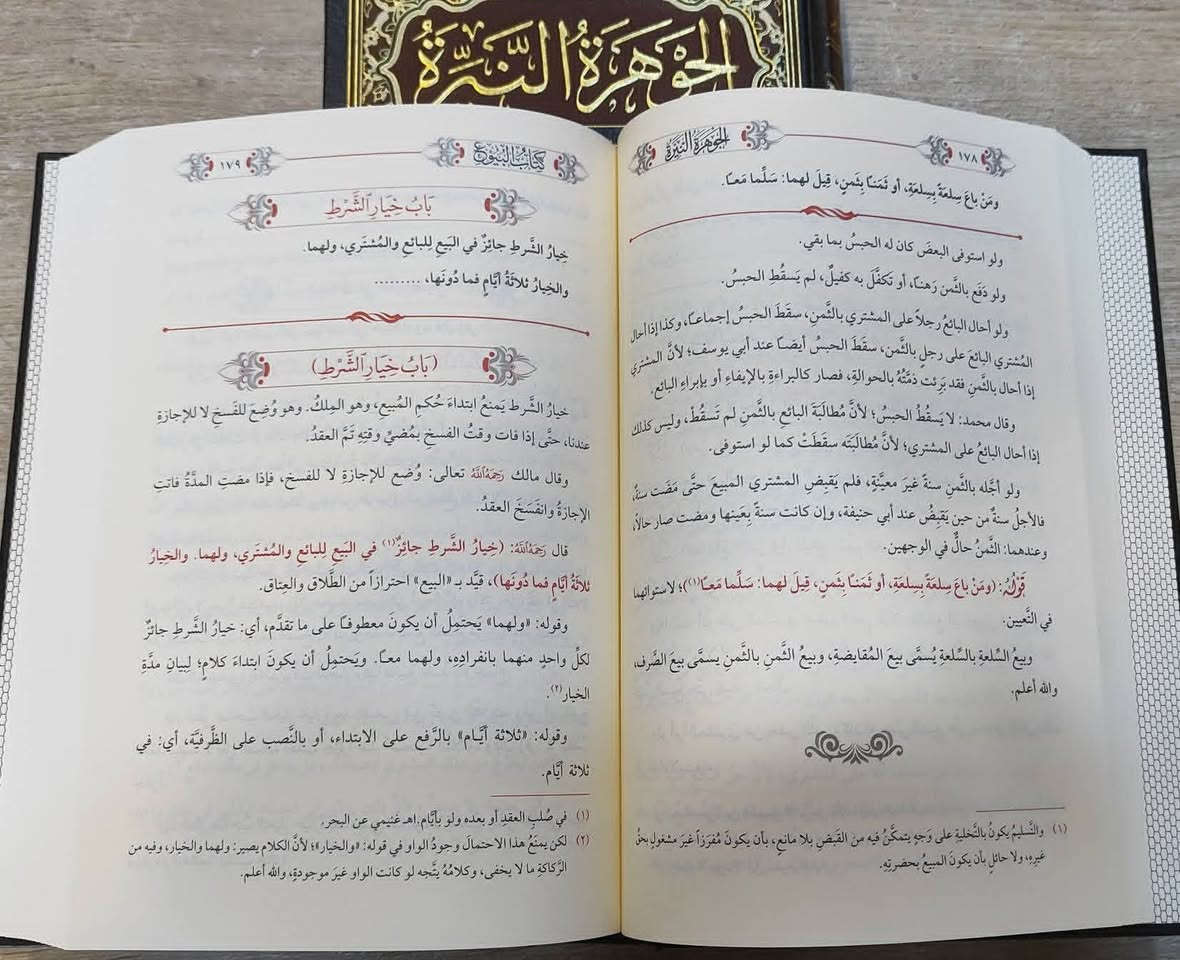 الجَوْهَرَةُ النَّيِّرَةُ
١٧٨
الجَوْهَرَةُ النَّيِّرَةُ
ومَنْ باعَ سِلعَةً بِسِلعَةٍ، أو ثَمَناً بِثَمنٍ، قِيلَ لهما: سَلِّما مَعاً.
ولو استوفى البعضَ كان له الحبسُ بما بقي.
ولو دَفَع بالثَّمن رَهناً، أو تَكفَّلَ به كفيلٌ، لم يَسقُطِ الحبسُ.
ولو أحال البائعُ رجلاً على المشتري بالثَّمنِ، سقَطَ الحبسُ إجماعاً، وكذا إذا أحال
المُشتري البائعَ على رجلٍ بالثَّمن، سقَطَ الحبسُ أيضاً عند أبي يوسف؛ لأنَّ المشتري
إذا أحال بالثَّمنِ فقد بَرِئت ذمَّتُهُ بالحوالةِ، فصار كالبراءةِ بالإيفاءِ أو بإبراءِ البائع.
وقال محمد: لا يَسقُطُ الحبسُ؛ لأنَّ مُطالَبَةَ البائعِ بالثَّمنِ لم تَسقُطْ، وليس كذلك
إذا أحال البائعُ على المشتري؛ لأنَّ مُطالبَتَه سقطَتْ كما لو استوفى.
ولو أجَّله بالثَّمنِ سنةً غيرَ معيَّنةٍ، فلم يَقبِضِ المشتري المبيعَ حتَّى مَضَت سنةٌ،
فالأجلُ سنةٌ من حين يَقبِضُ عند أبي حنيفة، وإن كانت سنةً بِعَينِها ومضت صار حالّاً،
وعندهما: الثَّمنُ حالٌّ في الوجهين.
قَوْلُهُ: (ومَنْ باعَ سِلعَةً بِسِلعَةٍ، أو ثَمَناً بِثَمنٍ، قِيلَ لهما: سَلِّما مَعاً(١))؛ لاستوائهما
في التَّعيين.
وبيعُ السِّلعةِ بالسِّلعةِ يُسمَّى بيعَ المُقايضةِ، وبيعُ الثَّمنِ بالثَّمنِ يسمَّى بيعَ الصَّرف،
والله أعلم.
(١) والتَّسليمُ يكونُ بالتَّخليةِ على وَجهٍ يتمكَّنُ فيه من القَبضِ بلا مانعٍ، بأن يكونَ مُفرَزاً غيرَ مشغولٍ بحقِّ
غيرِهِ، ولا حائلٍ بأن يكونَ المبيعُ بحضرتِهِ.
كِتَابُ البُيُوعِ
١٧٩
بَابُ خِيَارِ الشَّرْطِ
خِيارُ الشَّرطِ جائزٌ في البَيعِ لِلبائعِ والمُشتَري، ولهما.
والخِيارُ ثلاثَةُ أيَّامٍ فما دُونَها، .........
(بَابُ خِيَارِ الشَّرْطِ)
خيارُ الشَّرط يَمنعُ ابتداءَ حُكمِ المَبيعِ، وهو المِلكُ. وهو وُضِعَ للفَسخِ لا للإجازةِ
عندنا، حتَّى إذا فات وقتُ الفسخِ بمُضيِّ وقتِهِ تَمَّ العقدُ.
وقال مالك رَحِمَهُ اللَّهُ تعالى: وُضع للإجازةِ لا للفسخ، فإذا مضتِ المدَّةُ فاتتِ
الإجازةُ وانفَسَخَ العقدُ.
قال رَحِمَهُ اللَّهُ: (خِيارُ الشَّرطِ جائِزٌ(١) في البَيعِ لِلبائعِ والمُشتَري، ولهما. والخِيارُ
ثلاثَةُ أيَّامٍ فما دُونَها)، قيَّد بـ «البيع» احترازاً من الطَّلاق والعِتاق.
وقوله: «ولهما» يَحتمِلُ أن يكونَ معطوفاً على ما تقدَّم، أي: خيارُ الشَّرطِ جائزٌ
لكلِّ واحدٍ منهما بانفرادِهِ، ولهما معاً. ويَحتمِلُ أن يكونَ ابتداءَ كلامٍ؛ لِبيانِ مدَّةِ
الخيار(٢).
وقوله: «ثلاثة أيَّام» بالرَّفع على الابتداء، أو بالنَّصب على الظَّرفيَّة، أي: في
ثلاثة أيَّام.
(١) في صُلبِ العقدِ أو بعده ولو بأيَّام. اهـ غنيمي عن البحر.
(٢) لكن يمنَعُ هذا الاحتمالَ وجودُ الواو في قوله: «والخيار»؛ لأنَّ الكلام يصير: ولهما والخيار، وفيه من
الرَّكاكةِ ما لا يخفى، وكلامُهُ يتَّجه لو كانت الواو غيرَ موجودةٍ، والله أعلم.